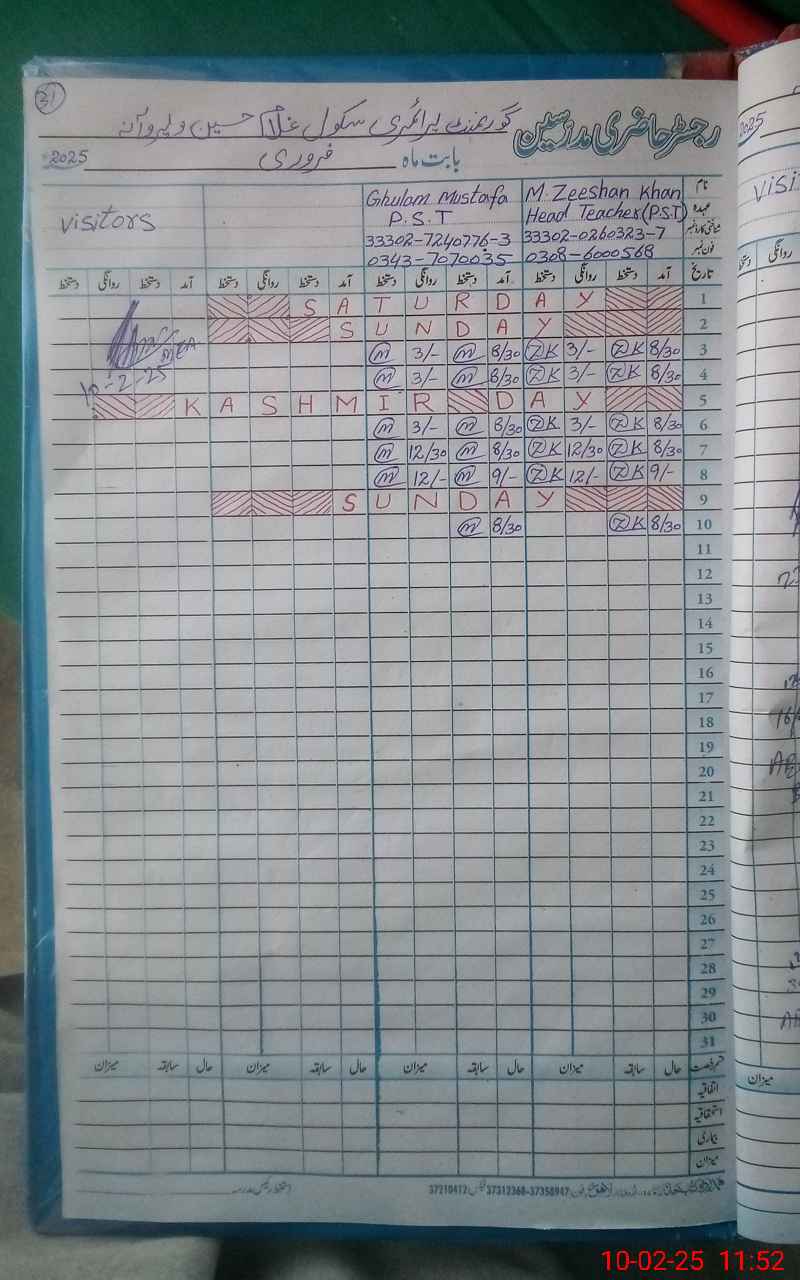 31
رجسٹر حاضری مدرسین گورنمنٹ پرائمری سکول غلام حسین
بابت ماہ فروری 2025
نام M. Zeeshan Khan Ghulam Mustafa visitors
عہدہ Head Teacher (P.S.T) P.S.T
شناختی کارڈ نمبر 33302-0260323-7 33302-7240776-3
فون نمبر 0308-6000568 0343-7070035
تاریخ آمد دستخط روانگی دستخط آمد دستخط روانگی دستخط آمد دستخط روانگی دستخط آمد دستخط روانگی دستخط
1 S A T U R D A Y
2 S U N D A Y
3 8/30 ZK 3/- ZK 8/30 m 3/- m
4 8/30 ZK 3/- ZK 8/30 m 3/- m
10-2-25
5 K A S H M I R D A Y
6 8/30 ZK 3/- ZK 8/30 m 3/- m
7 8/30 ZK 12/30 ZK 8/30 m 12/30 m
8 9/- ZK 12/- ZK 9/- m 12/- m
9 S U N D A Y
10 8/30 ZK 8/30 m
11
12
13
14
15
16
17
18
19
20
21
22
23
24
25
26
27
28
29
30
31
قسم رخصت حال سابقہ میزان حال سابقہ میزان حال سابقہ میزان حال سابقہ میزان
اتفاقیہ
استحقاقیہ
بیماری
میزان
37358947-37312368 فیکس 37210412
دستخط رئیس مدرسہ
2025
visi
روانگی دستخط
میزان
10-02-25 11:52